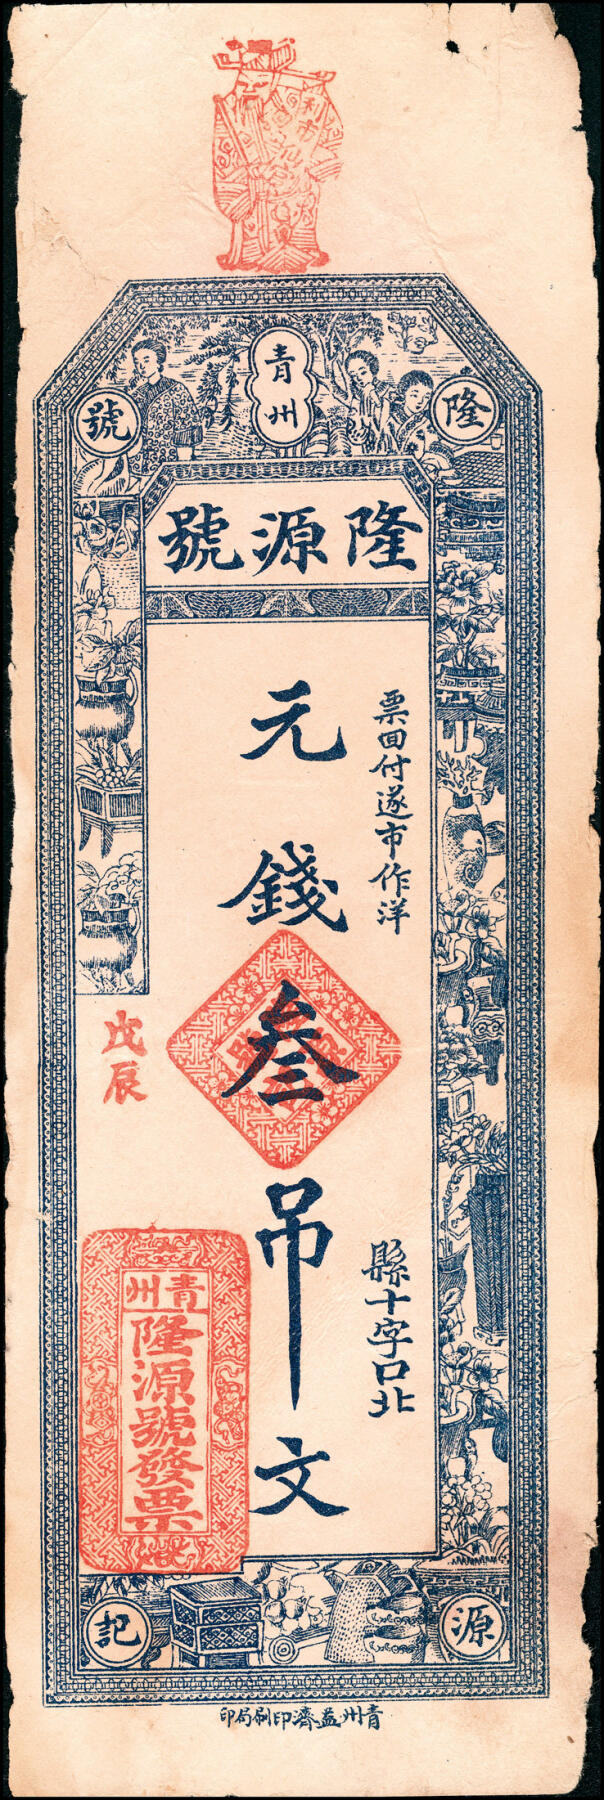 利市仙
青州
隆
號
隆源號
票回付遂市作洋
元錢叁吊文
縣十字口北
戊辰
青州
隆源號發票
源
記
青州益濟印刷局印